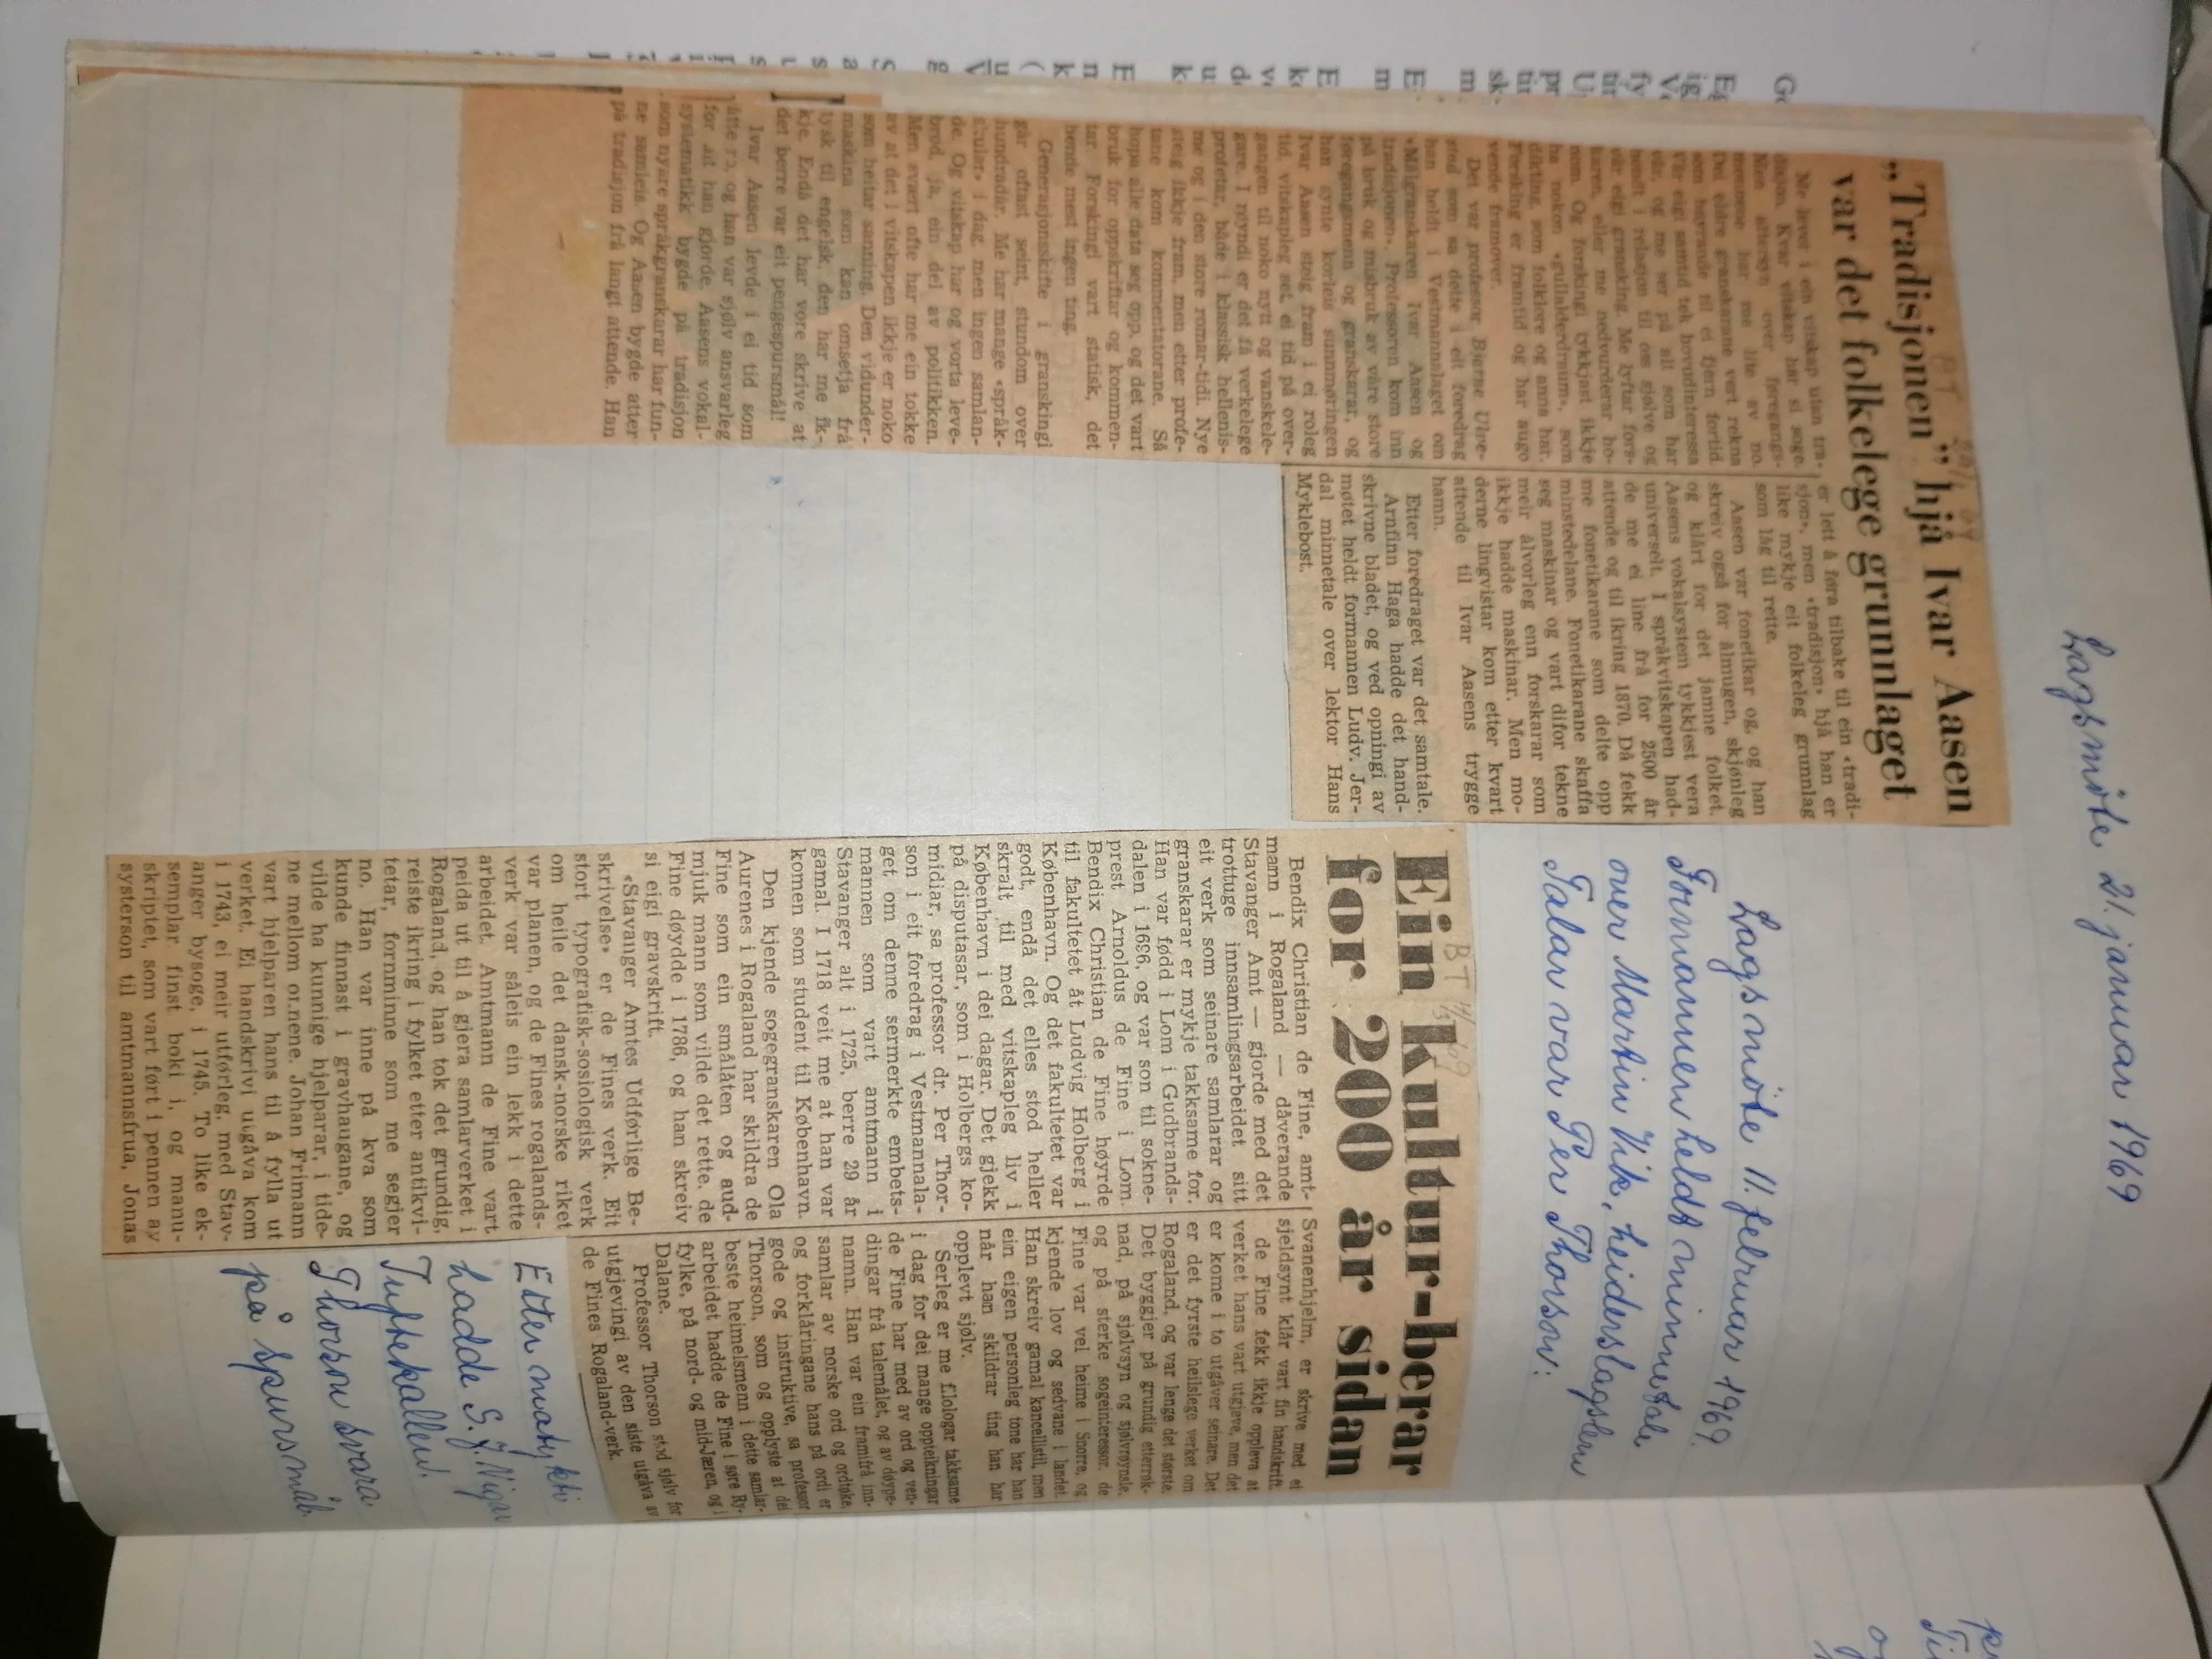 Lagsmöte 21. januar 1969
BT
„Tradisjonen” hjå Ivar Aasen
var det folkelege grunnlaget
Me lever i ein vitskap utan tra-
disjon. Kvar vitskap har si soge.
Men attersyn over føregangs-
mennene har me lite av no.
Dei eldre granskarane vert rekna
som høyrande til ei fjern fortid.
Vår eigi samtid tek hovudinteressa
vår, og me ser på alt som har
hendt i relasjon til oss sjølve og
vår eigi gransking. Me lyftar fors-
karen, eller me nedvurderar ho-
nom. Og forskingi tykkjast ikkje
ha nokon «gullalderdraum», som
dikting, som folklore og anna har.
Forsking er framtid og har augo
vende framover.
Det var professor Bjarne Ulve-
stad som sa dette i eit foredrag
han heldt i Vestmannalaget om
«Målgranskaren Ivar Aasen og
tradisjonen». Professoren kom inn
på bruk og misbruk av våre store
føregangsmenn og granskarar, og
han synte korleis sunnmøringen
Ivar Aasen steig fram i ei roleg
tid, vitskapleg set, ei tid på over-
gangen til noko nytt og vanskele-
gare. I røyndi er det få verkelege
profetar, både i klassisk hellenis-
me og i den store romar-tidi. Nye
steig ikkje fram, men etter profe-
tane kom kommentatorane. Så
hopa alle data seg opp, og det vart
bruk for oppskriftar og kommen-
tar. Forskingi vart statisk, det
hende mest ingen ting.
Generasjonskifte i granskingi
går oftast seint, stundom over
hundradår. Me har mange «språk-
skular» i dag, men ingen samlan-
de. Og vitskap har og vorta leve-
brød, ja, ein del av politikken.
Men svært ofte har me ein tokke
av at det i vitskapen ikkje er noko
som heitar sanning. Den vidunder-
maskina som kan omsetja frå
tysk til engelsk, den har me ik-
kje. Endå det har vore skrive at
det berre var eit pengespursmål!
Ivar Aasen levde i ei tid som
åtte ro, og han var sjølv ansvarleg
for alt han gjorde. Aasens vokal-
systematikk bygde på tradisjon
som nyare språkgranskarar har fun-
ne samleis. Og Aasen bygde atter
på tradisjon frå langt attende. Han
er lett å føra tilbake til ein «tradi-
sjon», men «tradisjon» hjå han er
like mykje eit folkeleg grunnlag
som låg til rette.
Aasen var fonetikar og, og han
skreiv også for ålmugen, skjønleg
og klårt for det jamne folket.
Aasens vokalsystem tykkjest vera
universelt. I språkvitskapen had-
de me ei line frå for 2500 år
attende og til ikring 1870. Då fekk
me fonetikarane som delte opp
minstedelane. Fonetikarane skaffa
seg maskinar og vart difor tekne
meir ålvorleg enn forskarar som
ikkje hadde maskinar. Men mo-
derne lingvistar kom etter kvart
attende til Ivar Aasens trygge
hamn.
Etter foredraget var det samtale.
Arnfinn Haga hadde det hand-
skrivne bladet, og ved opningi av
møtet heldt formannen Ludv. Jer-
dal minnetale over lektor Hans
Myklebost.
Lagsmöte 11. februar 1969.
Formannen heldt minnetale
over Martin Vik, heiderslagslem
Talar var Per Thorson:
BT 14/3 69
Ein kultur-berar
for 200 år sidan
Bendix Christian de Fine, amt-
mann i Rogaland — dåverande
Stavanger Amt — gjorde med det
trottuge innsamlingsarbeidet sitt
eit verk som seinare samlarar og
granskarar er mykje takksame for.
Han var fødd i Lom i Gudbrands-
dalen i 1696, og var son til sokne-
prest Arnoldus de Fine i Lom.
Bendix Christian de Fine høyrde
til fakultetet åt Ludvig Holberg i
København. Og det fakultetet var
godt, endå det elles stod heller
skralt til med vitskapleg liv i
København i dei dagar. Det gjekk
på disputasar, som i Holbergs ko-
midiar, sa professor dr. Per Thor-
son i eit foredrag i Vestmannala-
get om denne sermerkte embets-
mannen som vart amtmann i
Stavanger alt i 1725, berre 29 år
gamal. I 1718 veit me at han var
komen som student til København.
Den kjende sogegranskaren Ola
Aurenes i Rogaland har skildra de
Fine som ein smålåten og aud-
mjuk mann som vilde det rette. de
Fine døydde i 1786, og han skreiv
si eigi gravskrift.
«Stavanger Amtes Udførlige Be-
skrivelse» er de Fines verk. Eit
stort typografisk-sosiologisk verk
om heile det dansk-norske riket
var planen, og de Fines rogalands-
verk var såleis ein lekk i dette
arbeidet. Amtmann de Fine vart
peida ut til å gjera samlarverket i
Rogaland, og han tok det grundig,
reiste ikring i fylket etter antikvi-
tetar, fornminne som me segjer
no. Han var inne på kva som
kunde finnast i gravhaugane, og
vilde ha kunnige hjelparar, i tide-
ne mellom onnene. Johan Frimann
vart hjelparen hans til å fylla ut
verket. Ei handskrivi utgåva kom
i 1743, ei meir utførleg, med Stav-
anger bysoge, i 1745. To like ek-
semplar finst boki i, og manu-
skriptet, som vart ført i pennen av
systerson til amtmannsfrua, Jonas
Svanenhjelm, er skrive med ei
sjeldsynt klår vart fin handskrift.
de Fine fekk ikkje oppleva at
verket hans vart utgjeve, men det
er kome i to utgåver seinare. Det
er det fyrste heilslege verket om
Rogaland, og var lenge det største.
Det byggjer på grundig etterrøk-
nad, på sjølvsyn og sjølvrøynsle,
og på sterke sogeinteressor. de
Fine var vel heime i Snorre, og
kjende lov og sedvane i landet.
Han skreiv gamal kansellistil, men
ein eigen personleg tone har han
når han skildrar ting han har
opplevt sjølv.
Serleg er me filologar takksame
i dag for dei mange oppteikningar
de Fine har med av ord og ven-
dingar frå talemålet, og av døype-
namn. Han var ein framifrå inn-
samlar av norske ord og ordtøke,
og forklåringane hans på ordi er
gode og instruktive, sa professor
Thorson, som og opplyste at dei
beste heimelsmenn i dette samlar-
arbeidet hadde de Fine i søre Ry-
fylke, på nord- og mid-Jæren, og i
Dalane.
Professor Thorson stod sjølv for
utgjevingi av den siste utgåva av
de Fines Rogaland-verk.
Etter matykti
hadde S. J.
Tuftekallen.
Thorson svara
på spursmål.